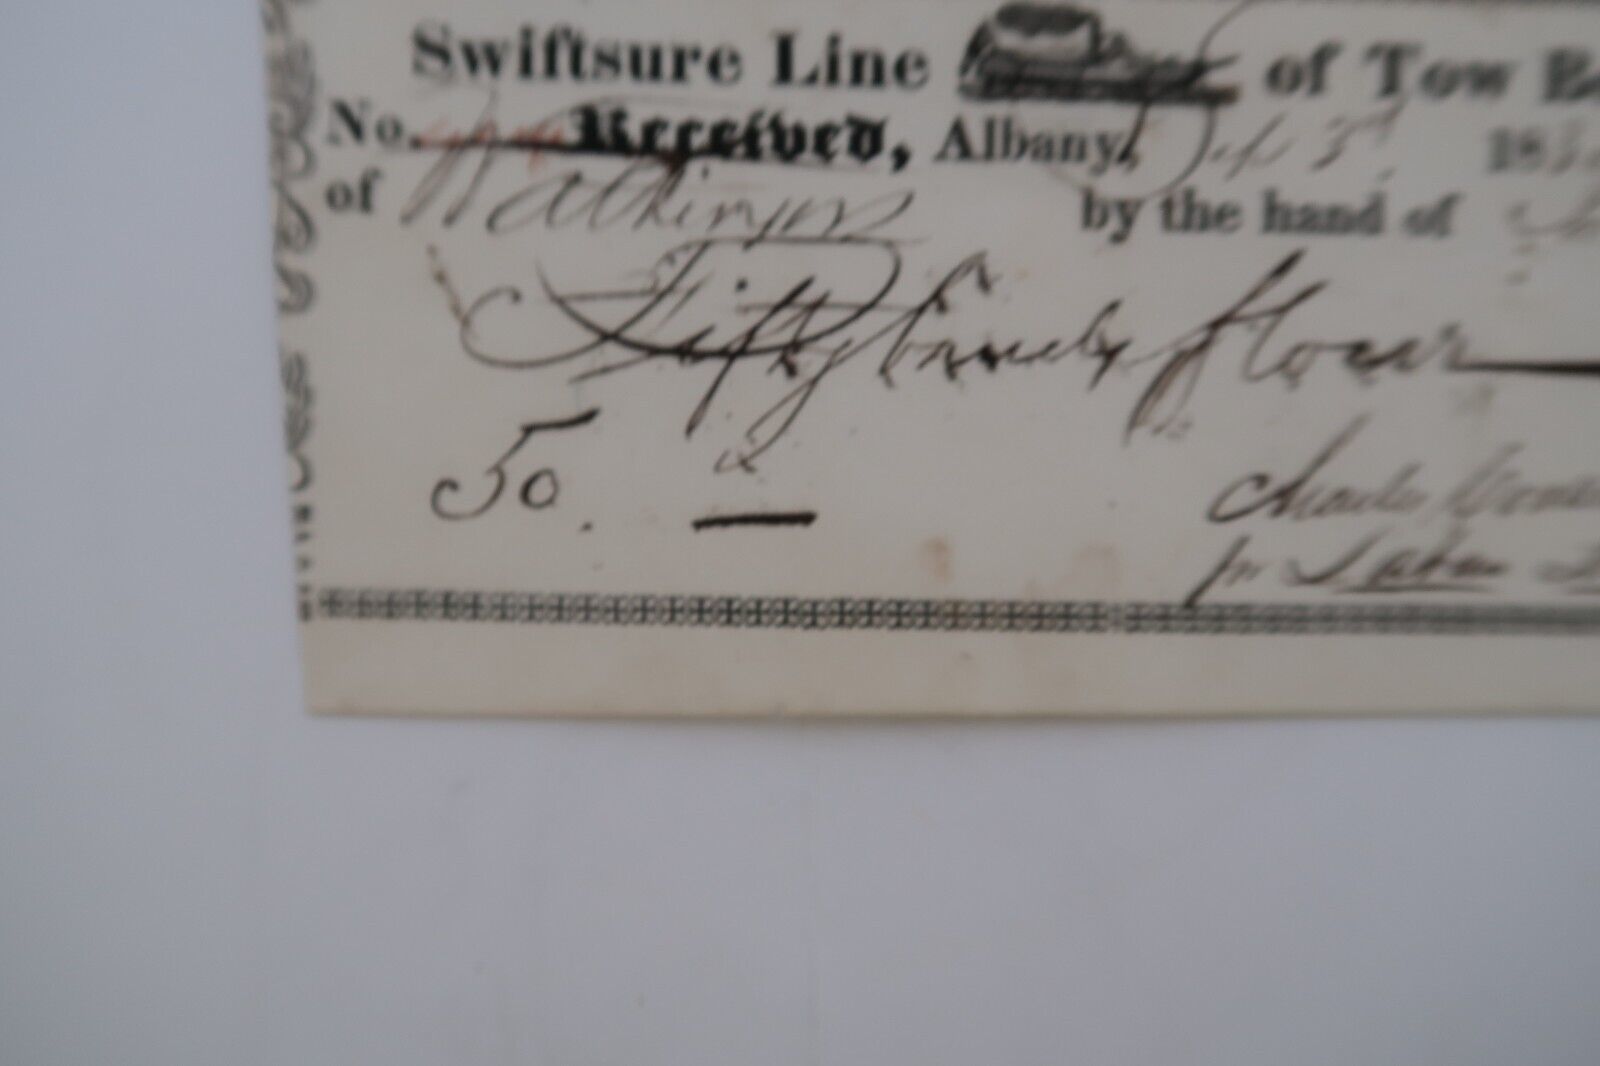 Swiftsure Line of Tow
No. Received, Albany, Sep 3d 18
of Watkinson by the hand of
Fifty Barrels flour
50.
Charles
for